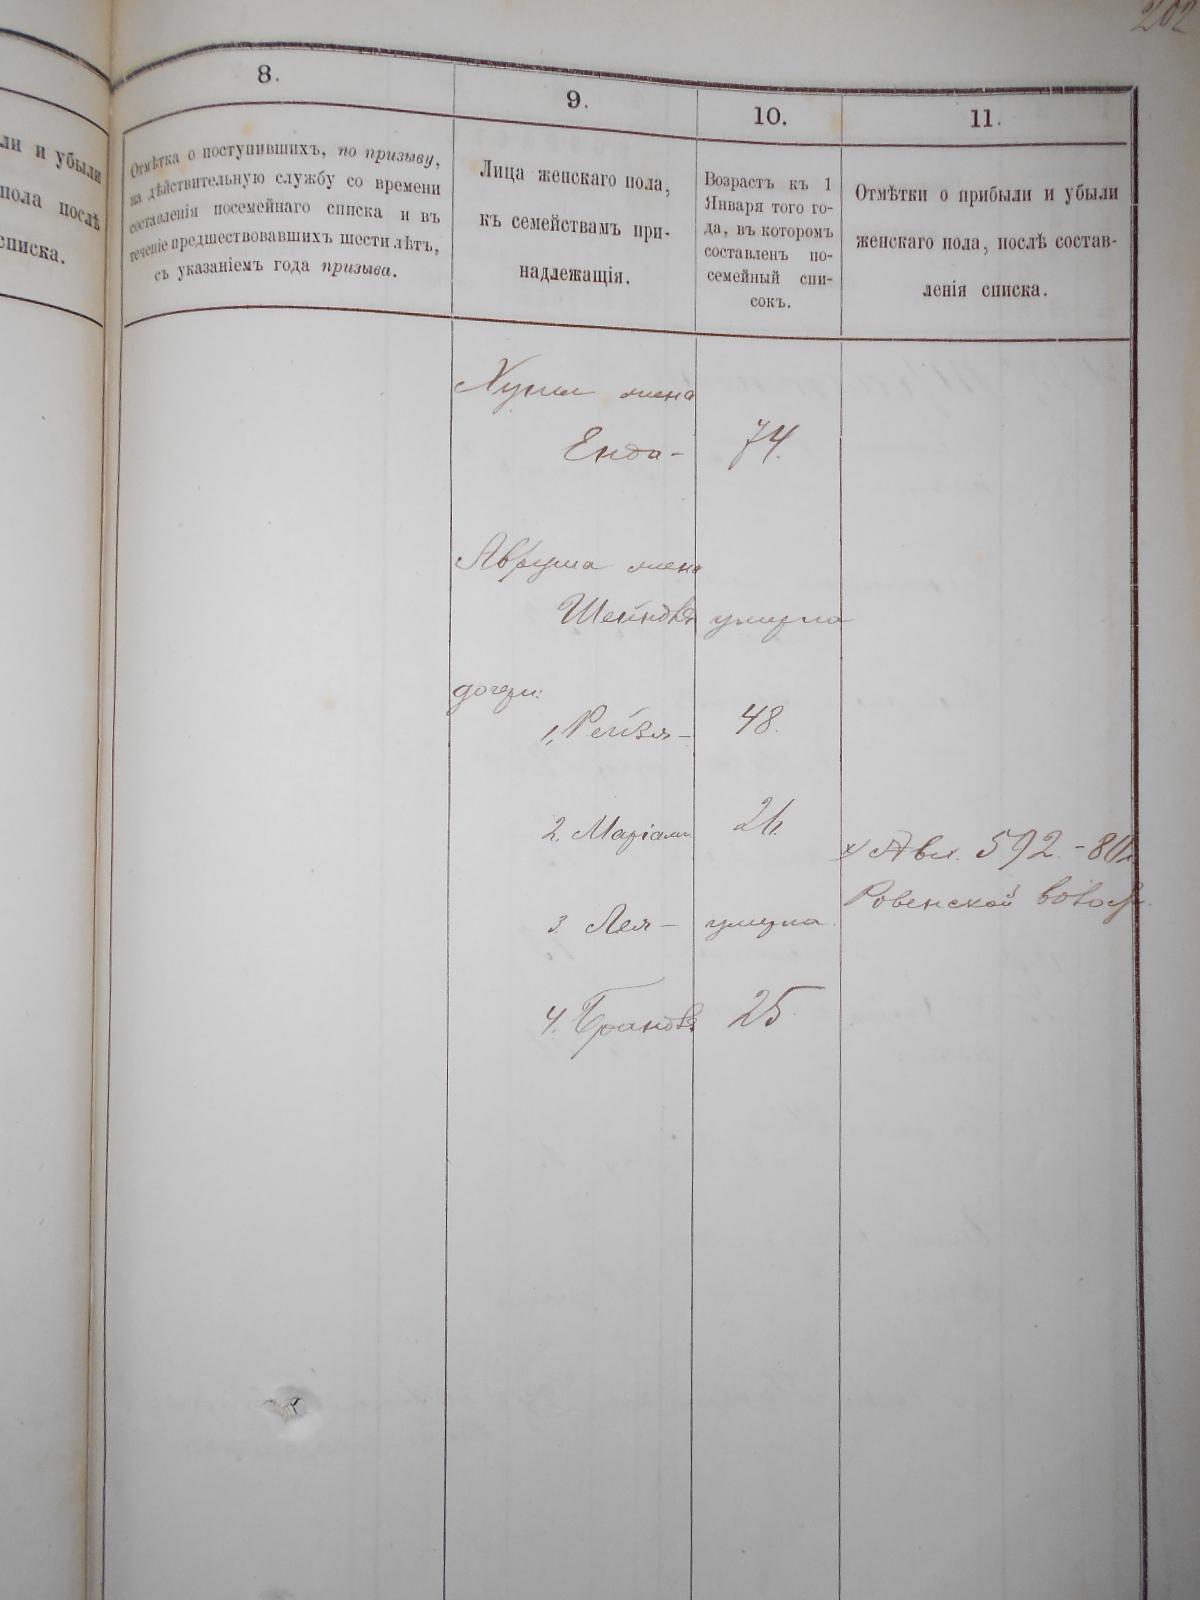 202
ли и убыли
пола послѣ
списка.
8.
Отмѣтка о поступившихъ, по призыву,
на дѣйствительную службу со времени
составленія посемейнаго списка и въ
теченіе предшествовавшихъ шести лѣтъ,
съ указаніемъ года призыва.
9.
Лица женскаго пола,
къ семействамъ при-
надлежащія.
10.
Возрастъ къ 1
Января того го-
да, въ которомъ
составленъ по-
семейный спи-
сокъ.
11.
Отмѣтки о прибыли и убыли
женскаго пола, послѣ состав-
ленія списка.
жена
Енда - 74.
Аврума жена
Шейндля умерла
дочери:
1, Рейзя - 48.
2. Маріам
3 Лея - умерла.
4. Брандля 25
592. - 80
Ровенской